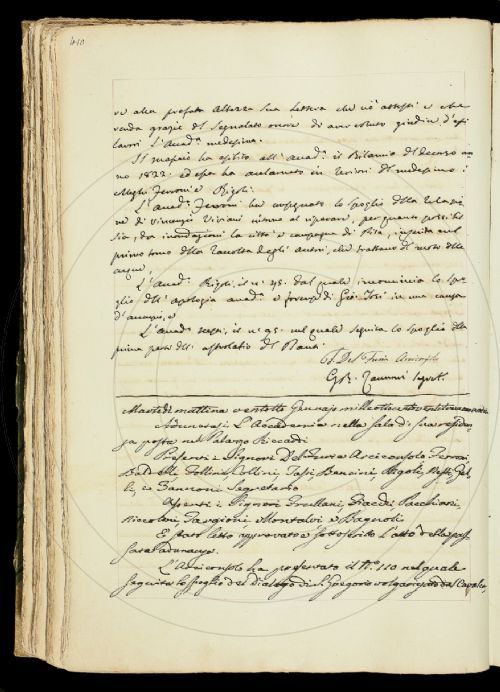 410
re alla prefata Altezza Sua lettera che ciò attesti e che
renda grazie del segnalato onore di aver voluto giudice d'essi
lavori l'Accad.ª medesima.
Il massaio ha esibito all'Accad.ª il Bilancio del decorso an-
no 1822. ed essa ha acclamato in revisori del medesimo i
Sig.ri Ferroni e Rigoli.
L'Accad.º Ferroni ha consegnato lo spoglio della Relazio-
ne di Vincenzio Viviani intorno al riparare, per quanto possibil
sia, da inondazioni la città e campagna di Pisa, inserita nel
primo tomo della Raccolta degli autori, che trattano del moto delle
acque,
L'Accad.º Rigoli, il n.º 45. dal quale incomincia lo spo-
glio dell'apologia di Gio. Tosi in una causa
d'acque, e
L'Accad.º il n.º 95. nel quale seguita lo spoglio della
prima parte del del Pianti.
C. Del C. Furia Arciconsolo
G.B. Zannoni Segret.
Martedì mattina ventotto Gennajo milleottocentoventitre
Adunatasi l'Accademia nella Sala di sua residen-
za posta nel Palazzo Riccardi
Presenti i Signori Del Furia Arciconsolo Ferroni,
Baldelli Follini Collini, Tassi, Bencini, Rigoli, Nesti, Gel-
li, e Zannoni Segretario
Assenti i Signori Frullani, Fiacchi, Pacchiani,
Niccolini, Targioni, Montalvi e Bagnoli
È stato letto approvato e sottoscritto l'atto della pas-
sata adunanza.
L'Arciconsolo ha presentato il N.º 110 nel quale
seguita lo spoglio del Dialogo di S. Gregorio volgarizzato dal Cavalca,